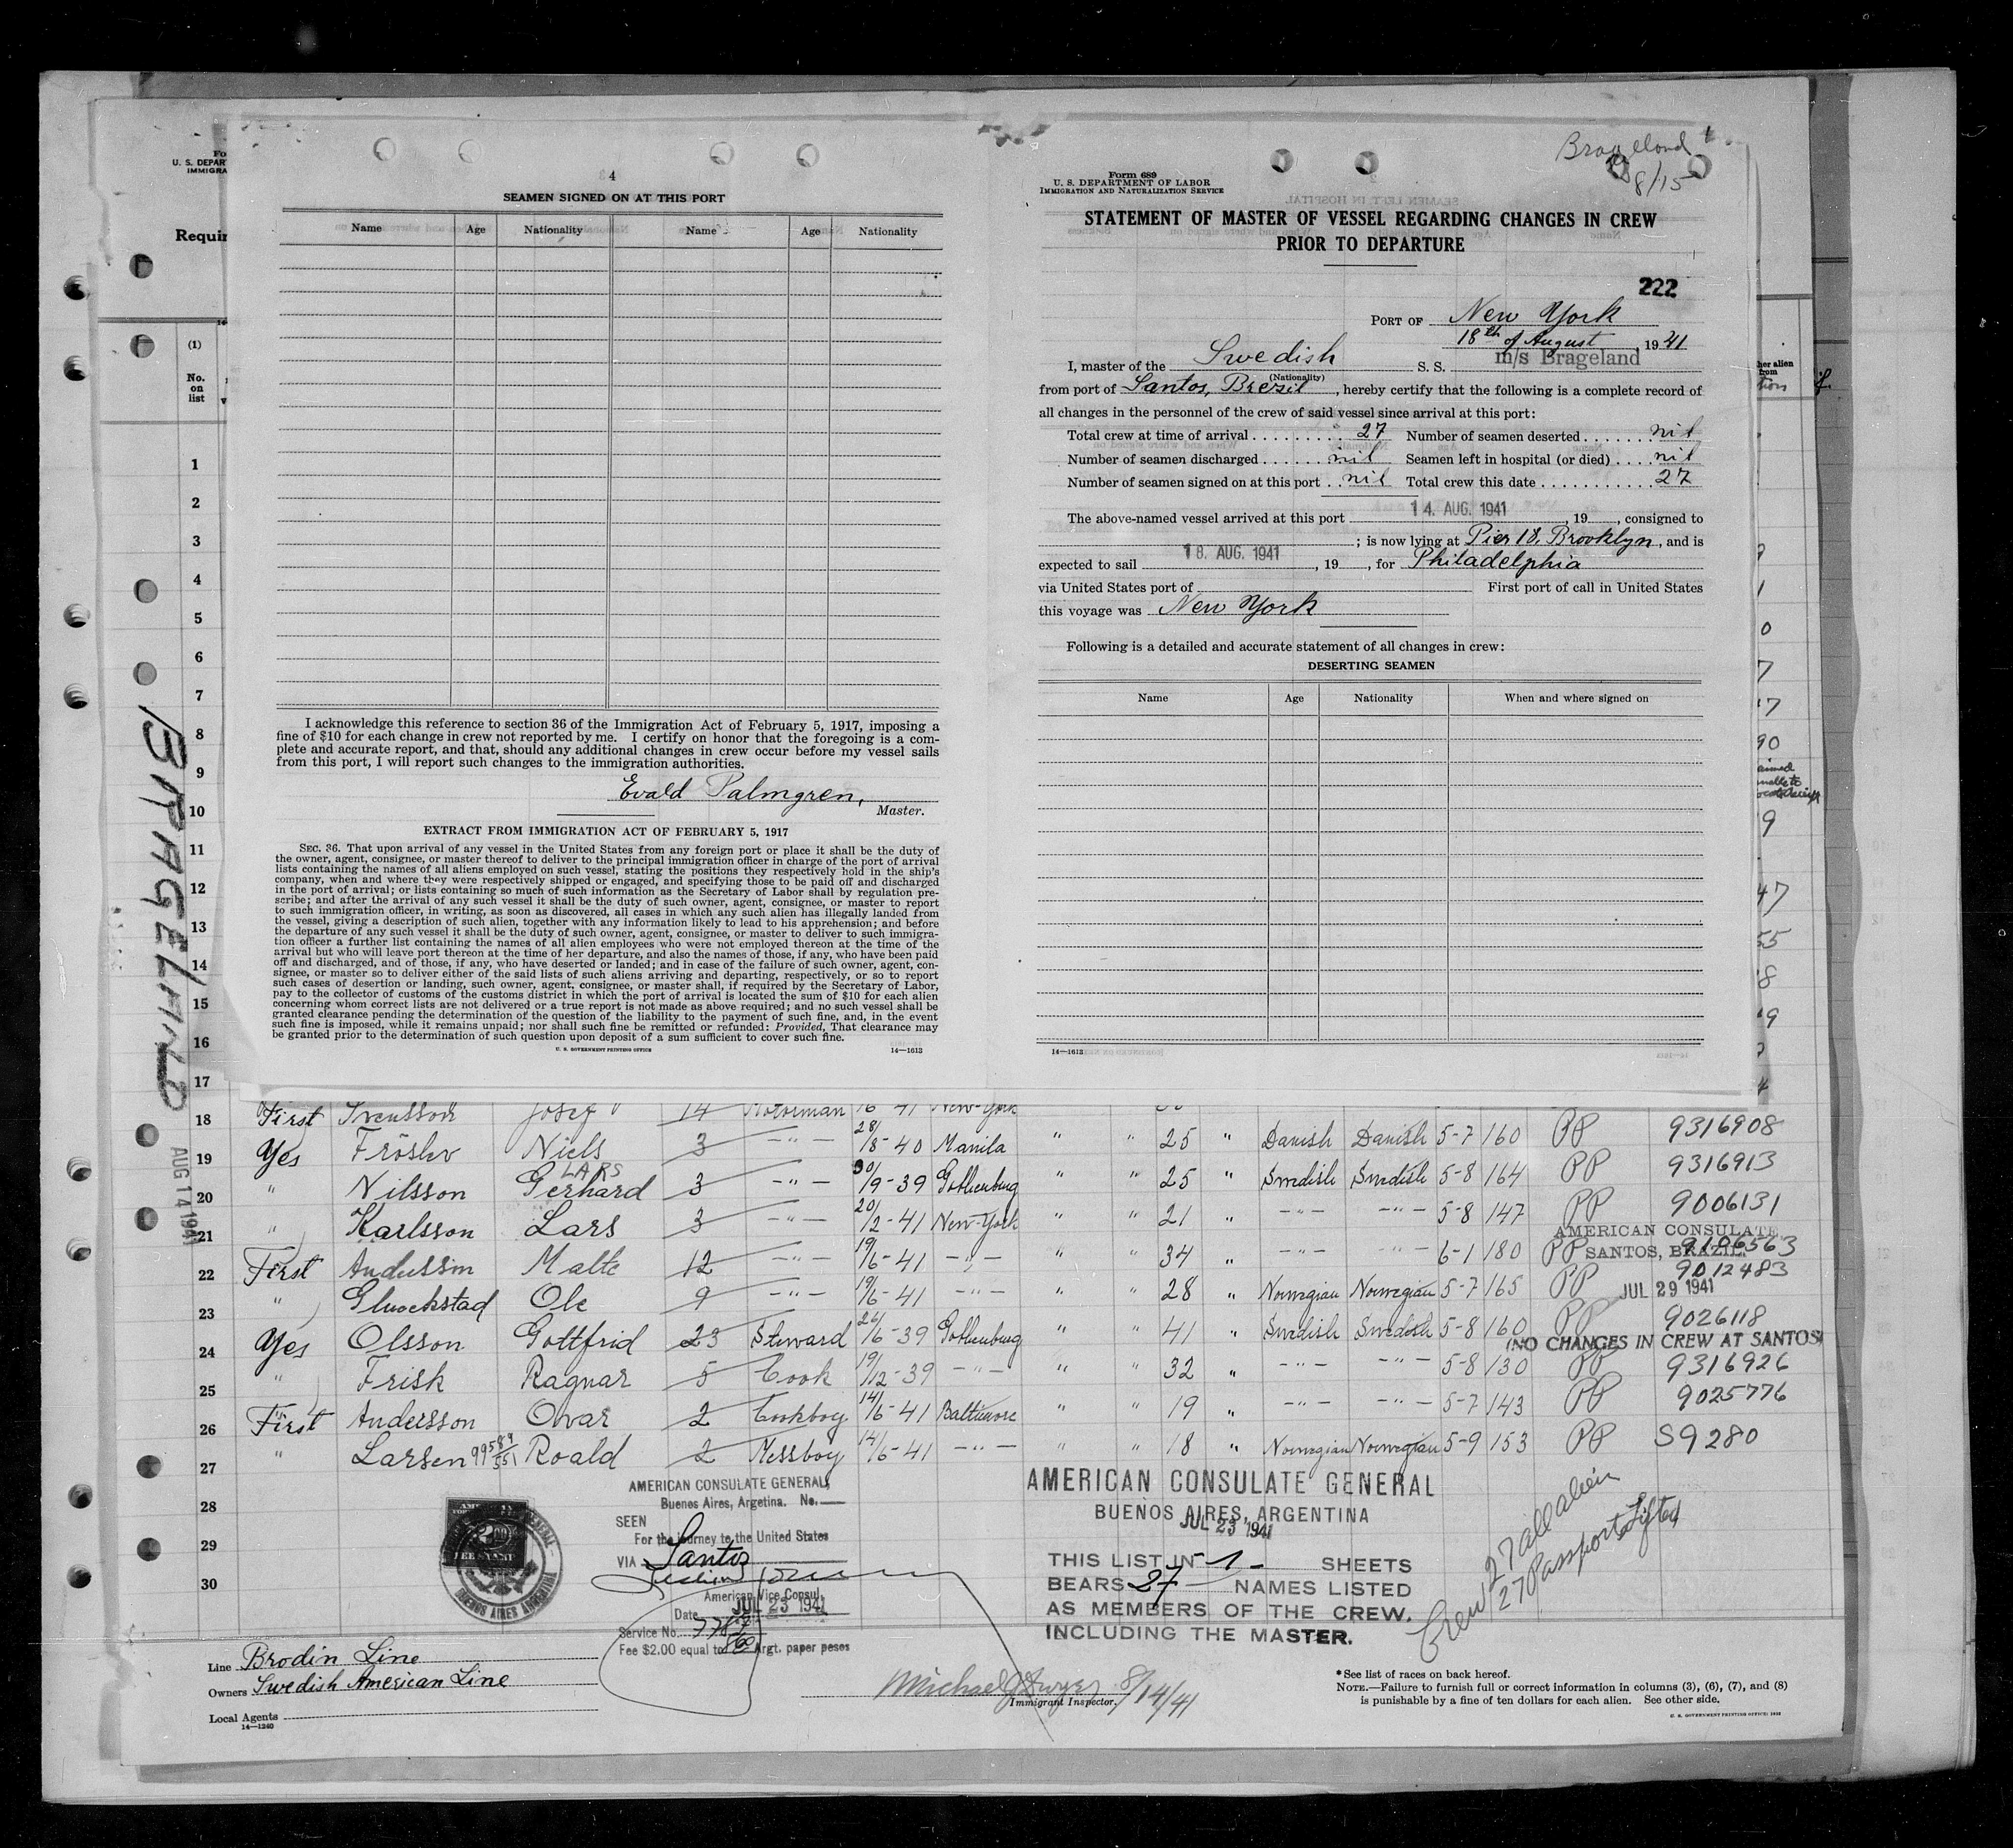 Brageland
8/15
4
SEAMEN SIGNED ON AT THIS PORT
Name Age Nationality Name Age Nationality
I acknowledge this reference to section 36 of the Immigration Act of February 5, 1917, imposing a
fine of $10 for each change in crew not reported by me. I certify on honor that the foregoing is a com-
plete and accurate report, and that, should any additional changes in crew occur before my vessel sails
from this port, I will report such changes to the immigration authorities.
Evald Palmgren,
Master.
EXTRACT FROM IMMIGRATION ACT OF FEBRUARY 5, 1917
SEC. 36. That upon arrival of any vessel in the United States from any foreign port or place it shall be the duty of
the owner, agent, consignee, or master thereof to deliver to the principal immigration officer in charge of the port of arrival
lists containing the names of all aliens employed on such vessel, stating the positions they respectively hold in the ship's
company, when and where they were respectively shipped or engaged, and specifying those to be paid off and discharged
in the port of arrival; or lists containing so much of such information as the Secretary of Labor shall by regulation pre-
scribe; and after the arrival of any such vessel it shall be the duty of such owner, agent, consignee, or master to report
to such immigration officer, in writing, as soon as discovered, all cases in which any such alien has illegally landed from
the vessel, giving a description of such alien, together with any information likely to lead to his apprehension; and before
the departure of any such vessel it shall be the duty of such owner, agent, consignee, or master to deliver to such immigra-
tion officer a further list containing the names of all alien employees who were not employed thereon at the time of the
arrival but who will leave port thereon at the time of her departure, and also the names of those, if any, who have been paid
off and discharged, and of those, if any, who have deserted or landed; and in case of the failure of such owner, agent, con-
signee, or master so to deliver either of the said lists of such aliens arriving and departing, respectively, or so to report
such cases of desertion or landing, such owner, agent, consignee, or master shall, if required by the Secretary of Labor,
pay to the collector of customs of the customs district in which the port of arrival is located the sum of $10 for each alien
concerning whom correct lists are not delivered or a true report is not made as above required; and no such vessel shall be
granted clearance pending the determination of the question of the liability to the payment of such fine, and, in the event
such fine is imposed, while it remains unpaid; nor shall such fine be remitted or refunded: Provided, That clearance may
be granted prior to the determination of such question upon deposit of a sum sufficient to cover such fine.
U. S. GOVERNMENT PRINTING OFFICE 14—1613
Form 689
U. S. DEPARTMENT OF LABOR
IMMIGRATION AND NATURALIZATION SERVICE
STATEMENT OF MASTER OF VESSEL REGARDING CHANGES IN CREW
PRIOR TO DEPARTURE
222
PORT OF New York
18th of August, 1941
I, master of the Swedish S. S. m/s Brageland
(Nationality)
from port of Santos, Brezil, hereby certify that the following is a complete record of
all changes in the personnel of the crew of said vessel since arrival at this port:
Total crew at time of arrival 27 Number of seamen deserted nil
Number of seamen discharged nil Seamen left in hospital (or died) nil
Number of seamen signed on at this port nil Total crew this date 27
The above-named vessel arrived at this port 14. AUG. 1941, 19, consigned to
; is now lying at Pier 18, Brooklyn, and is
expected to sail 18. AUG. 1941, 19, for Philadelphia
via United States port of First port of call in United States
this voyage was New York
Following is a detailed and accurate statement of all changes in crew:
DESERTING SEAMEN
Name Age Nationality When and where signed on
14—1613
Fo
U. S. DEPAR
IMMIGRA
Requir
(1)
No.
on
list
1
2
3
4
5
6
7
8
9
10
11
12
13
14
15
16
17
BRAGELAND
AUG 14 1941
18 First Svensson Josef 14 Motorman 16 - 41 New-York
19 Yes Fröslev Niels 3 -"- 28/8-40 Manila " " 25 " Danish Danish 5-7 160 PP 9316908
LARS
20 " Nilsson Gerhard 3 -"- 30/9-39 Gothenburg " " 25 " Swedish Swedish 5-8 164 PP 9316913
21 " Karlsson Lars 3 -"- 20/2-41 New-York " " 21 " -"- -"- 5-8 147 PP 9006131
22 First Andersson Malte 12 -"- 19/6-41 -"- " " 34 " -"- -"- 6-1 180 PP 9106563
23 " Gluckstad Ole 9 -"- 19/6-41 -"- " " 28 " Norwegian Norwegian 5-7 165 PP 9012483
24 Yes Olsson Gottfrid 23 Steward 26/6-39 Gothenburg " " 41 " Swedish Swedish 5-8 160 PP 9026118
25 " Frisk Ragnar 5 Cook 19/12-39 -"- " " 32 " -"- -"- 5-8 130 PP 9316926
26 First Andersson Ovar 2 Cookboy 14/6-41 Baltimore " " 19 " -"- -"- 5-7 143 PP 9025776
27 " Larsen Roald 2 Messboy 14/6-41 -"- " " 18 " Norwegian Norwegian 5-9 153 PP S9280
28
29
30
AMERICAN CONSULATE
SANTOS, BRAZIL
JUL 29 1941
(NO CHANGES IN CREW AT SANTOS)
AMERICAN CONSULATE GENERAL,
Buenos Aires, Argetina. No.
SEEN
For the journey to the United States
VIA Santos
American Vice Consul
Date JUL 23 1941
Service No.
Fee $2.00 equal to Argt. paper pesos
BUENOS AIRES ARGENTINE
AMERICAN CONSULATE GENERAL
BUENOS AIRES, ARGENTINA
JUL 23 1941
THIS LIST IN -1- SHEETS
BEARS 27 NAMES LISTED
AS MEMBERS OF THE CREW.
INCLUDING THE MASTER.
Crew 27 all alien
27 Passports Lifted
Line Brodin Line
Owners Swedish American Line
Local Agents
14—1240
Michael J Dwyer 8/14/41
Immigrant Inspector.
*See list of races on back hereof.
NOTE.—Failure to furnish full or correct information in columns (3), (6), (7), and (8)
is punishable by a fine of ten dollars for each alien. See other side.
U. S. GOVERNMENT PRINTING OFFICE: